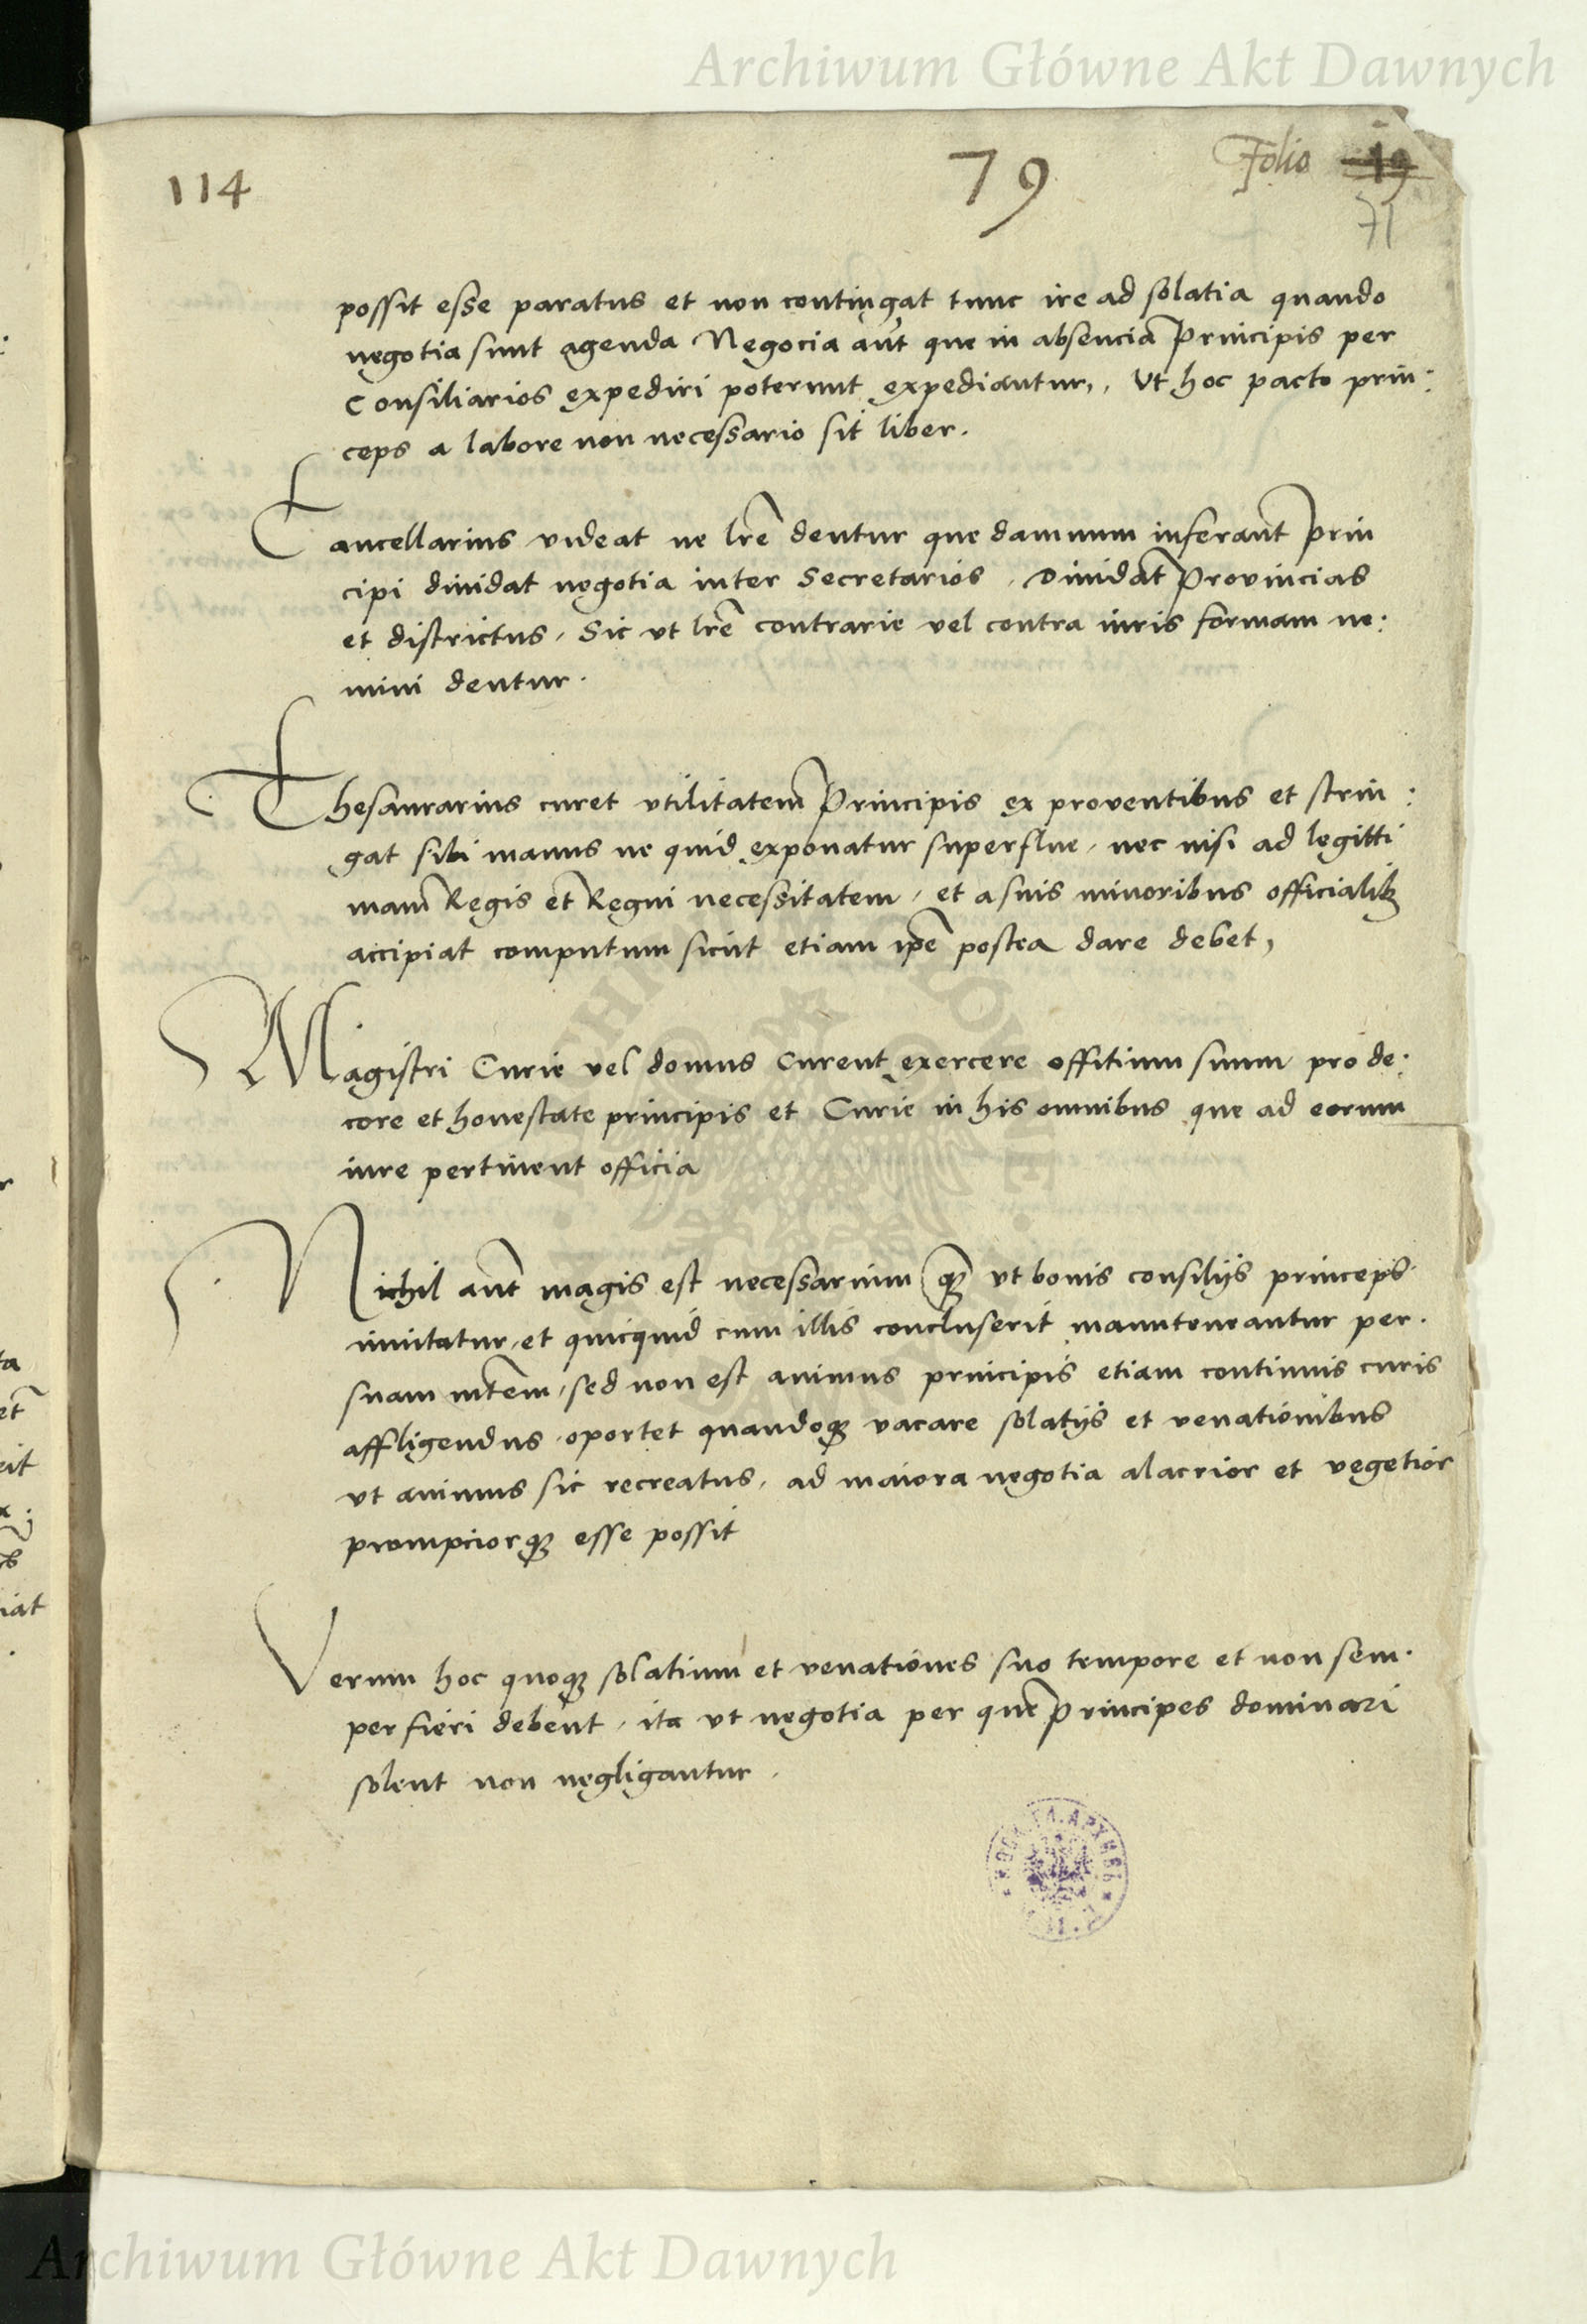 Archiwum Główne Akt Dawnych
114
79
Folio 19
71
possit esse paratus et non contingat tunc ire ad solatia quando
negotia sunt agenda Negocia aut que in absencia Principis per
Consiliarios expediri poterunt expediantur,. Vt hoc pacto prin:
ceps a labore non necessario sit liber.
Cancellarius videat ne lre dentur que damnum inferant Prin
cipi dividat negotia inter Secretarios. Dividat Provincias
et districtus, Sic vt lre contrarie vel contra iuris formam ne:
mini dentur.
Thesaurarius curet vtilitatem Principis ex proventibus et strin:
gat sibi manus ne quid exponatur superflue, nec nisi ad legitti
mam Regis et Regni necessitatem, et a suis minoribus officialibꝫ
accipiat computum sicut etiam ipe postea dare debet,
Magistri Curie vel domus curent exercere offitium suum pro de:
core et honestate principis et Curie in his omnibus que ad eorum
iure pertinent officia
Nichil aut magis est necessarium qꝫ vt bonis consilijs princeps
innitatur, et quicquid cum illis concluserit manuteneantur per.
suam mtem, sed non est animus principis etiam continuis curis
affligendus, oportet quandoqꝫ vacare solatijs et venationibus
vt animus sic recreatus, ad maiora negotia alacrior et vegetior
prompciorqꝫ esse possit
Verum hoc quoqꝫ solatium et venationes suo tempore et non sem.
per fieri debent, ita vt negotia per que Principes dominari
solent non negligantur.
Archiwum Główne Akt Dawnych